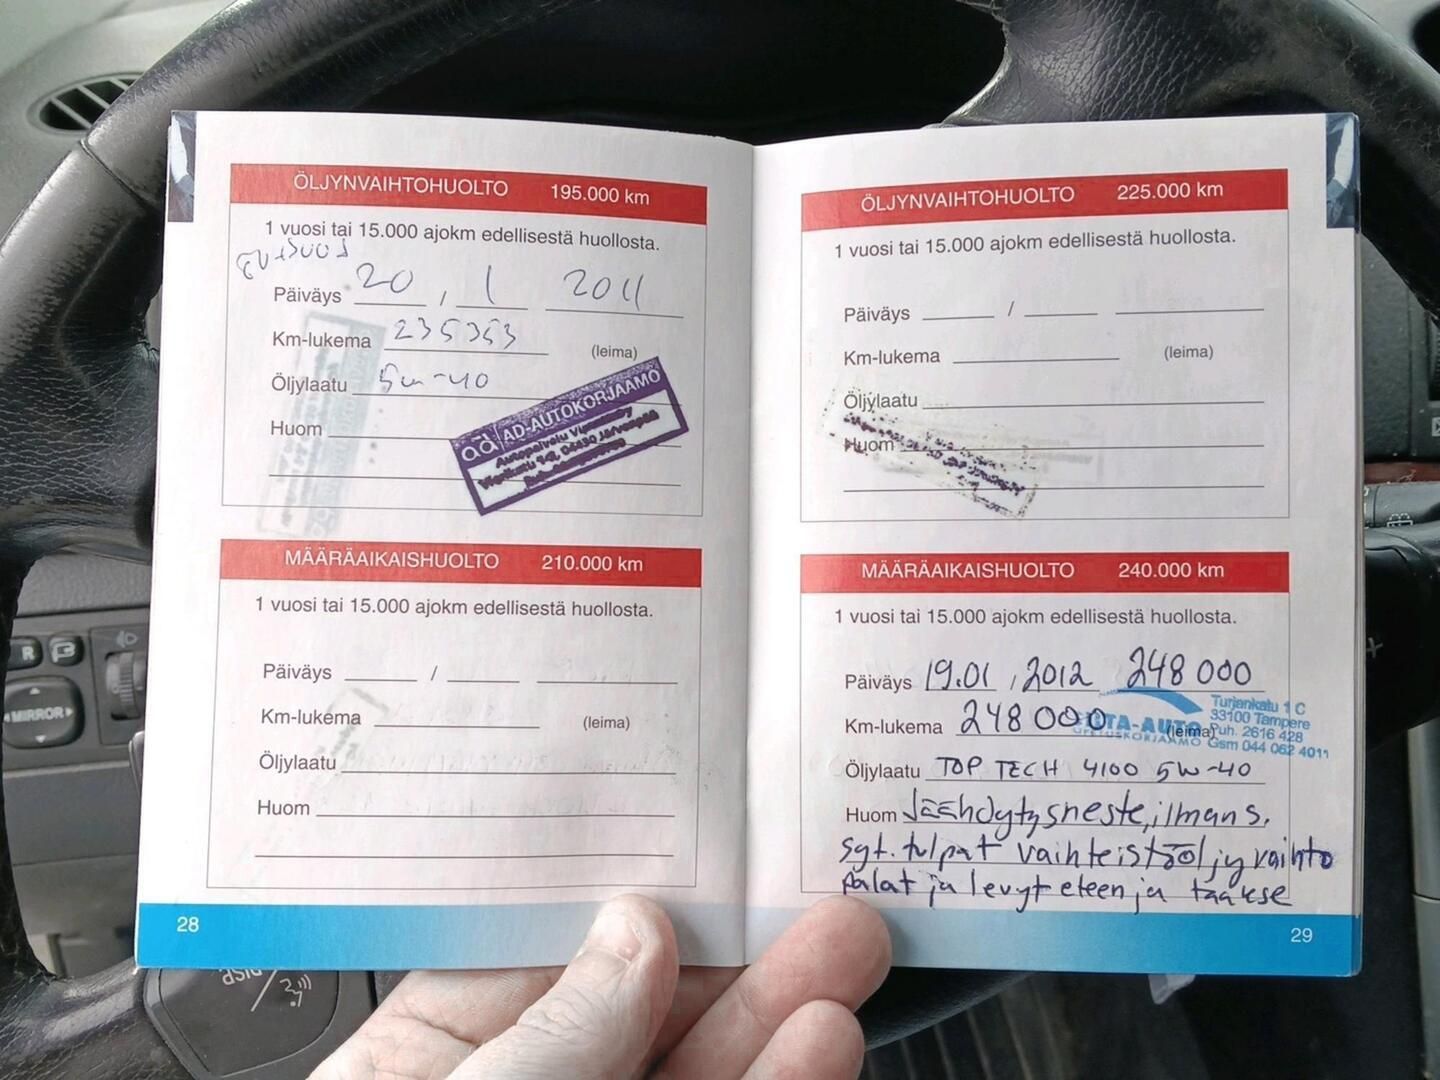 ÖLJYNVAIHTOHUOLTO 195.000 km
1 vuosi tai 15.000 ajokm edellisestä huollosta.
Päiväys 20 / 1 2011
Km-lukema 235353 (leima)
Öljylaatu 5w-40
Huom
ad AD-AUTOKORJAAMO
Autopalvelu
04430 Järvenpää
MÄÄRÄAIKAISHUOLTO 210.000 km
1 vuosi tai 15.000 ajokm edellisestä huollosta.
Päiväys /
Km-lukema (leima)
Öljylaatu
Huom
28
ÖLJYNVAIHTOHUOLTO 225.000 km
1 vuosi tai 15.000 ajokm edellisestä huollosta.
Päiväys /
Km-lukema (leima)
Öljylaatu
Huom
MÄÄRÄAIKAISHUOLTO 240.000 km
1 vuosi tai 15.000 ajokm edellisestä huollosta.
Päiväys 19.01 , 2012 248 000
Km-lukema 248 000 (leima)
Turjankatu 1 C
33100 Tampere
Puh. 2616 428
Gsm 044 062 4011
Öljylaatu TOP TECH 4100 5W-40
Huom Jäähdytysneste, ilmans.
syt. tulpat vaihteistööljyvaihto
palat ja levyt eteen ja taakse
29
R
MIRROR
DISP